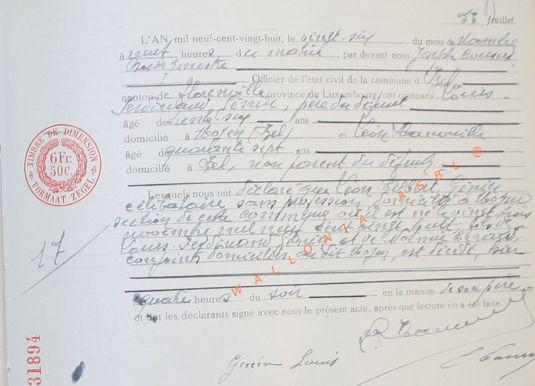 feuillet.
L'AN mil neuf-cent-vingt-huit, le vingt-six du mois de Novembre
à neuf heures du matin, par devant nous Joseph
Bourgmestre
Officier de l'état civil de la commune d'Izel,
canton de Florenville province de Luxembourg ont comparu Louis-
Ferdinand Génin, père du défunt
âgé de ans
domicilié à Moyen Izel et Léon
âgé de quarante sept ans
domicilié à Izel, non parent du défunt
Lesquels nous ont déclaré que Léon Génin
célibataire, sans profession, domicilié à Moyen
section de cette commune où il est né le vingt
novembre mil neuf cent vingt huit, fils de
Louis-Ferdinand Génin et de
conjoints domiciliés au dit Moyen, est décédé, hier
à quatre heures du soir en la maison de son père
et ont les déclarants signé avec nous le présent acte, après que lecture en a été faite.
Genin Louis
17
TIMBRE DE DIMENSION
6 Fr.
50 C.
FORMAAT ZEGEL
31894
WALLONIA ASBL ®